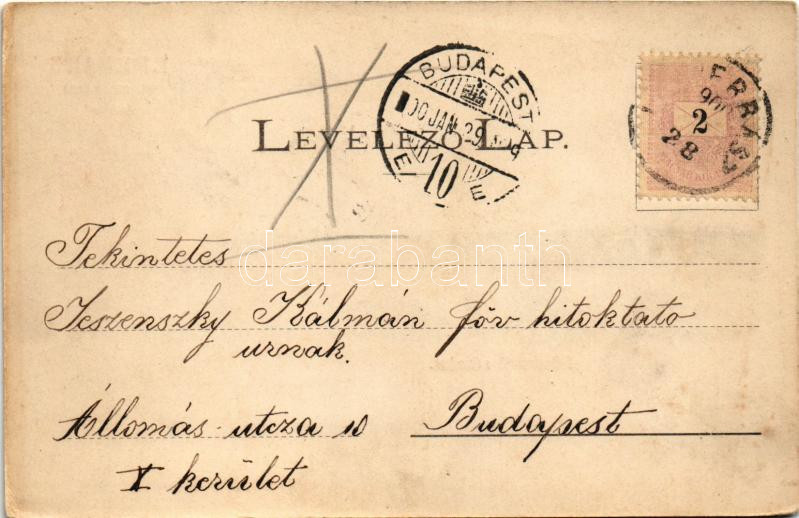 BUDAPEST
900 JAN. 29
10
ERRAS
900
28
2
LEVELEZŐ-LAP.
Tekintetes
Jeszenszky Kálmán főv hitoktato
urnak.
Állomás-utcza 10 Budapest
X kerület
darabanth